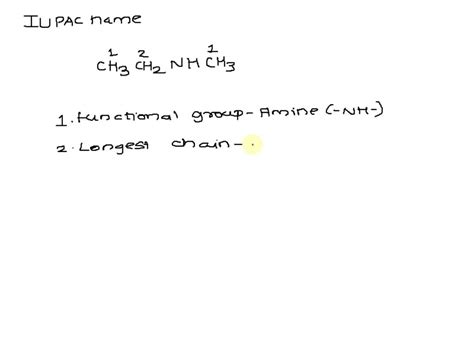 IUPAC name
1 2 1
CH3 CH2 NH CH3
1. functional group - Amine (-NH-)
2. Longest chain -